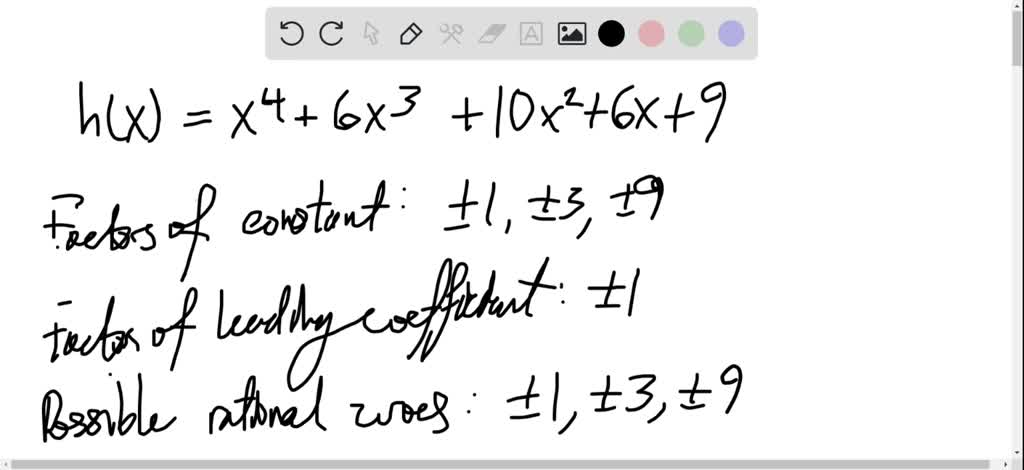 h(x) = x⁴ + 6x³ + 10x² + 6x + 9
Factors of constant: ±1, ±3, ±9
Factor of leading coefficient: ±1
Possible rational zeroes: ±1, ±3, ±9